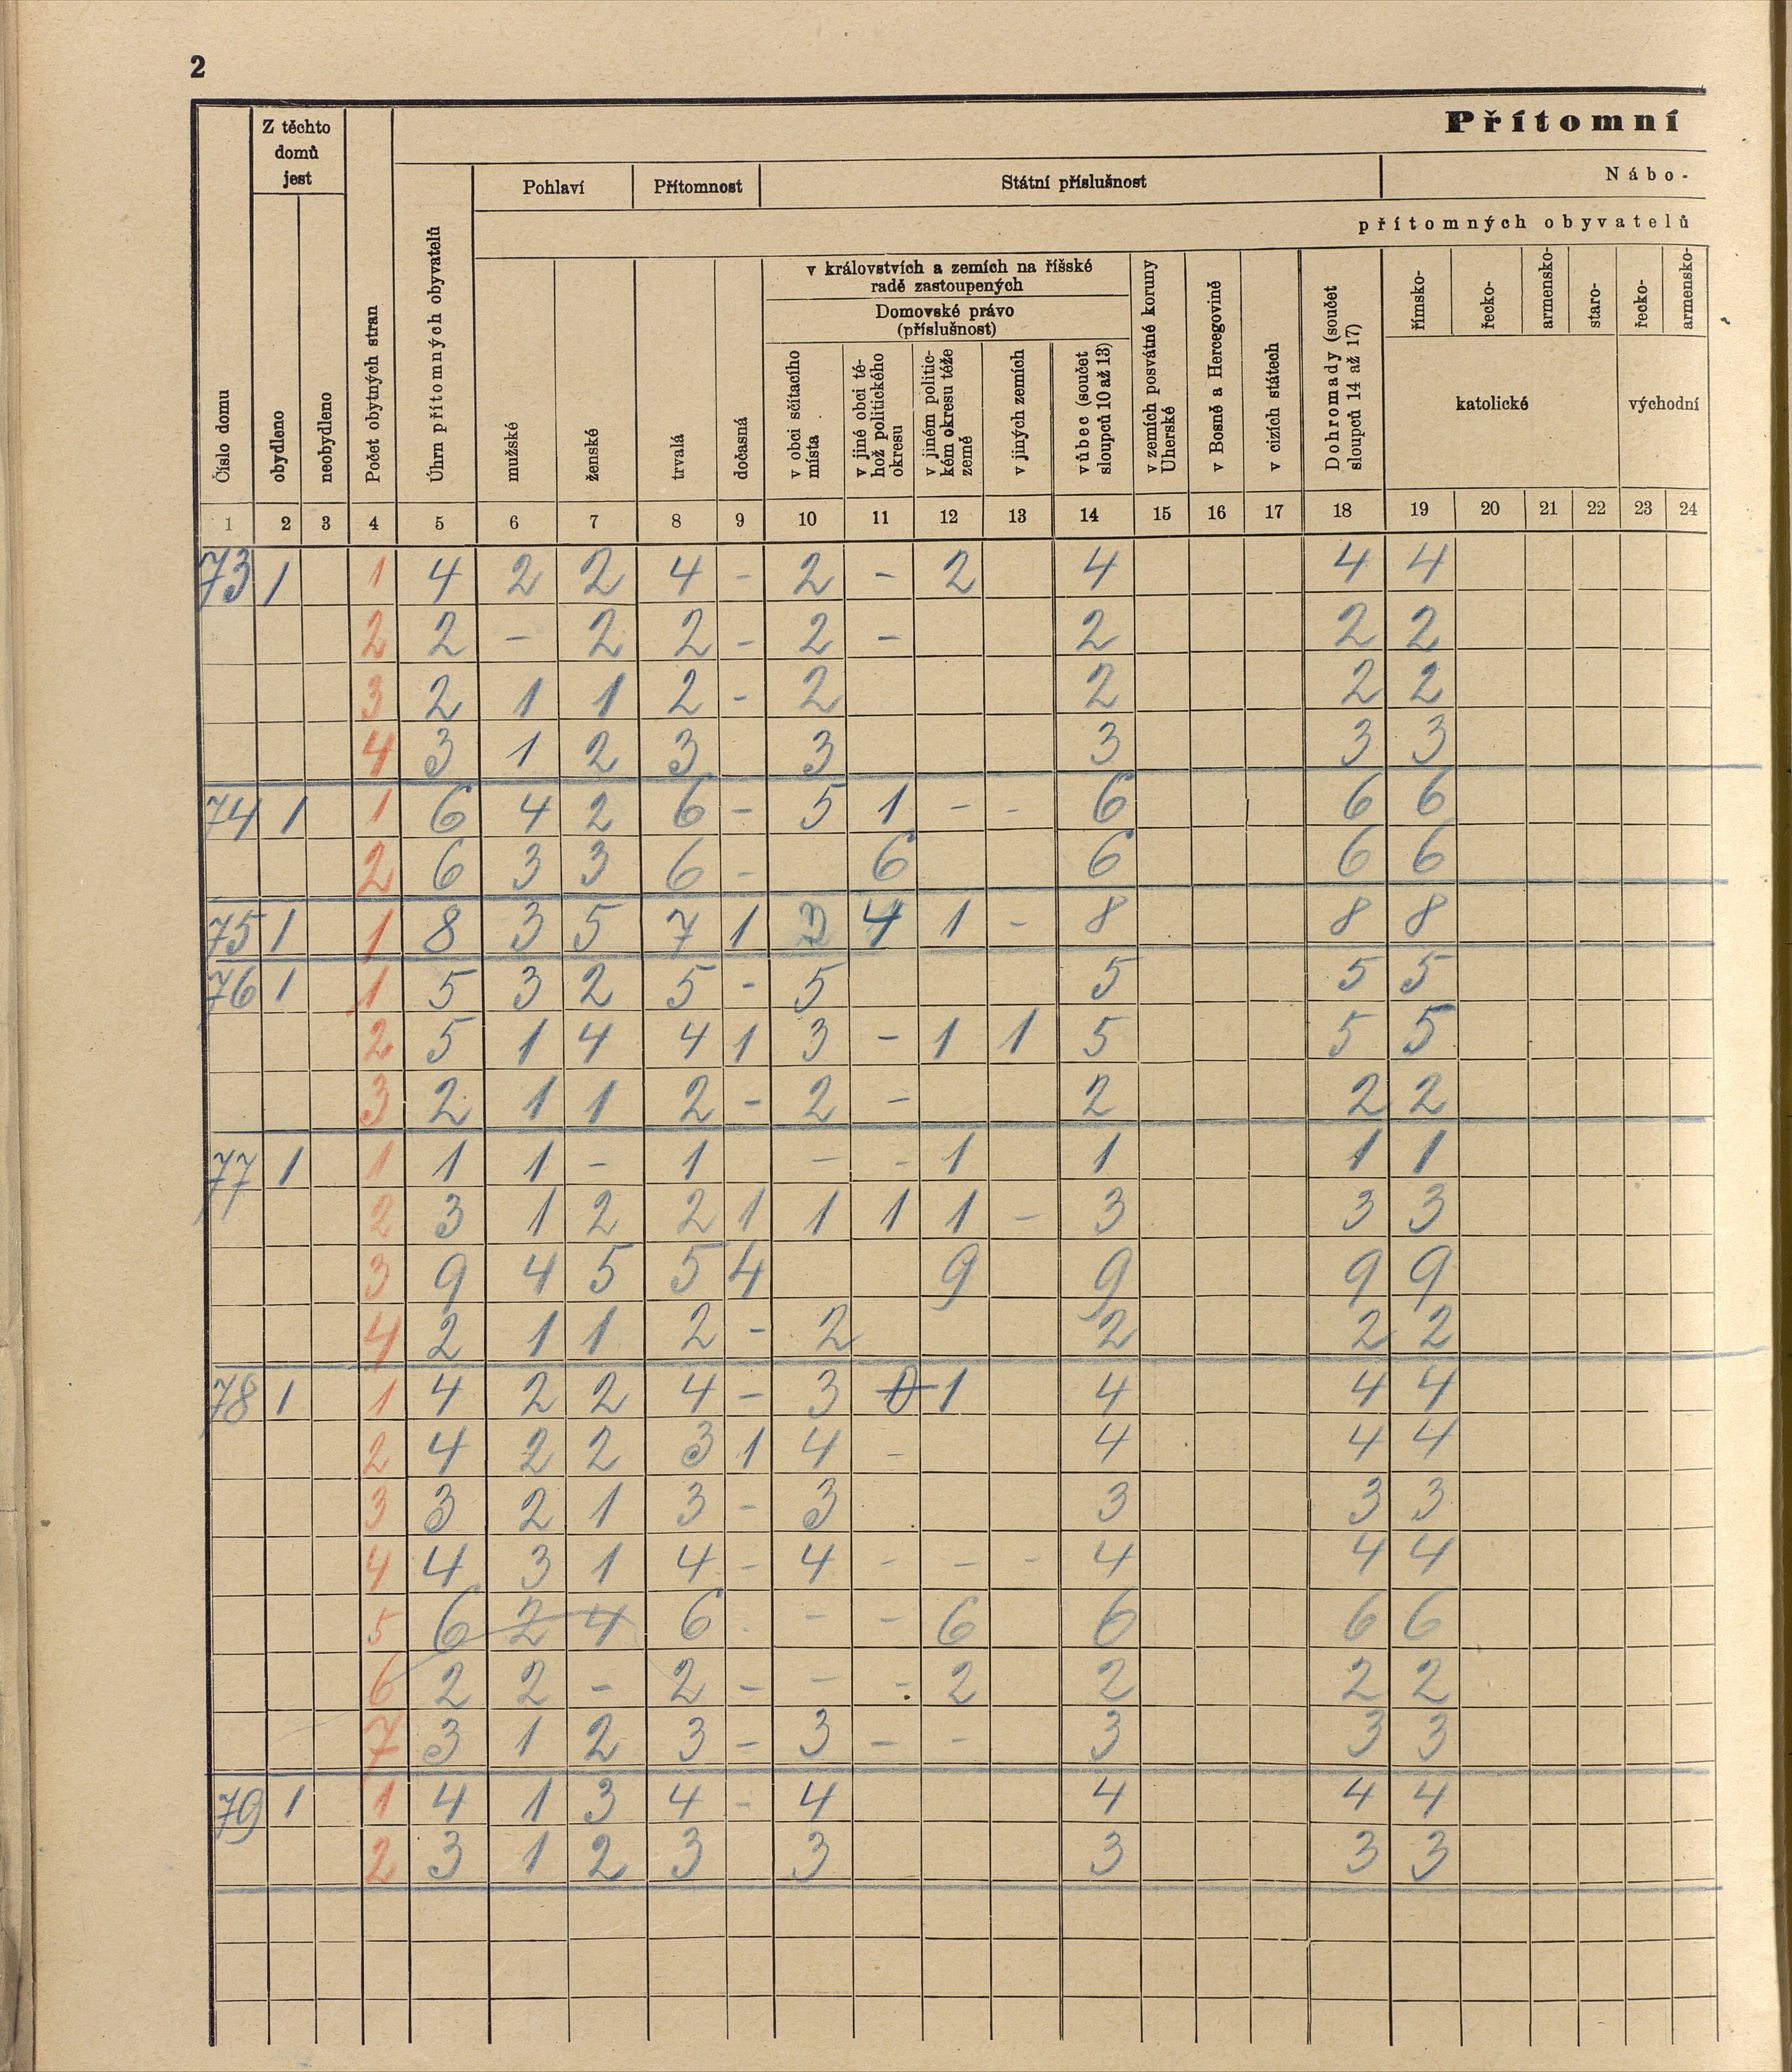 2
Přítomní
Z těchto domů jest
Pohlaví
Přítomnost
Státní příslušnost
Nábo-
přítomných obyvatelů
v královstvích a zemích na říšské
radě zastoupených
Domovské právo
(příslušnost)
Číslo domu
obydleno
neobydleno
Počet obytných stran
Úhrn přítomných obyvatelů
mužské
ženské
trvalá
dočasná
v obci sčítacího místa
v jiné obci téhož politického okresu
v jiném politickém okresu téže země
v jiných zemích
vůbec (součet sloupců 10 až 13)
v zemích posvátné koruny Uherské
v Bosně a Hercegovině
v cizích státech
Dohromady (součet sloupců 14 až 17)
římsko-
řecko-
armensko-
staro-
řecko-
armensko-
katolické
východní
1 2 3 4 5 6 7 8 9 10 11 12 13 14 15 16 17 18 19 20 21 22 23 24
73 1 1 4 2 2 4 - 2 - 2 4 4 4
2 2 - 2 2 - 2 - 2 2 2
3 2 1 1 2 - 2 2 2 2
4 3 1 2 3 3 3 3 3
74 1 1 6 4 2 6 - 5 1 - - 6 6 6
2 6 3 3 6 - 6 6 6 6
75 1 1 8 3 5 7 1 4 1 - 8 8 8
76 1 1 5 3 2 5 - 5 5 5 5
2 5 1 4 4 1 3 - 1 1 5 5 5
3 2 1 1 2 - 2 - 2 2 2
77 1 1 1 1 - 1 - - 1 1 1 1
2 3 1 2 2 1 1 1 1 - 3 3 3
3 9 4 5 5 4 9 9 9 9
4 2 1 1 2 - 2 2 2 2
78 1 1 4 2 2 4 - 3 0 1 4 4 4
2 4 2 2 3 1 4 - 4 4 4
3 3 2 1 3 - 3 3 3 3
4 4 3 1 4 - 4 - - - 4 4 4
5 6 2 4 6 - - 6 6 6 6
6 2 2 - 2 - - - 2 2 2 2
7 3 1 2 3 - 3 - - 3 3 3
79 1 1 4 1 3 4 - 4 4 4 4
2 3 1 2 3 3 3 3 3